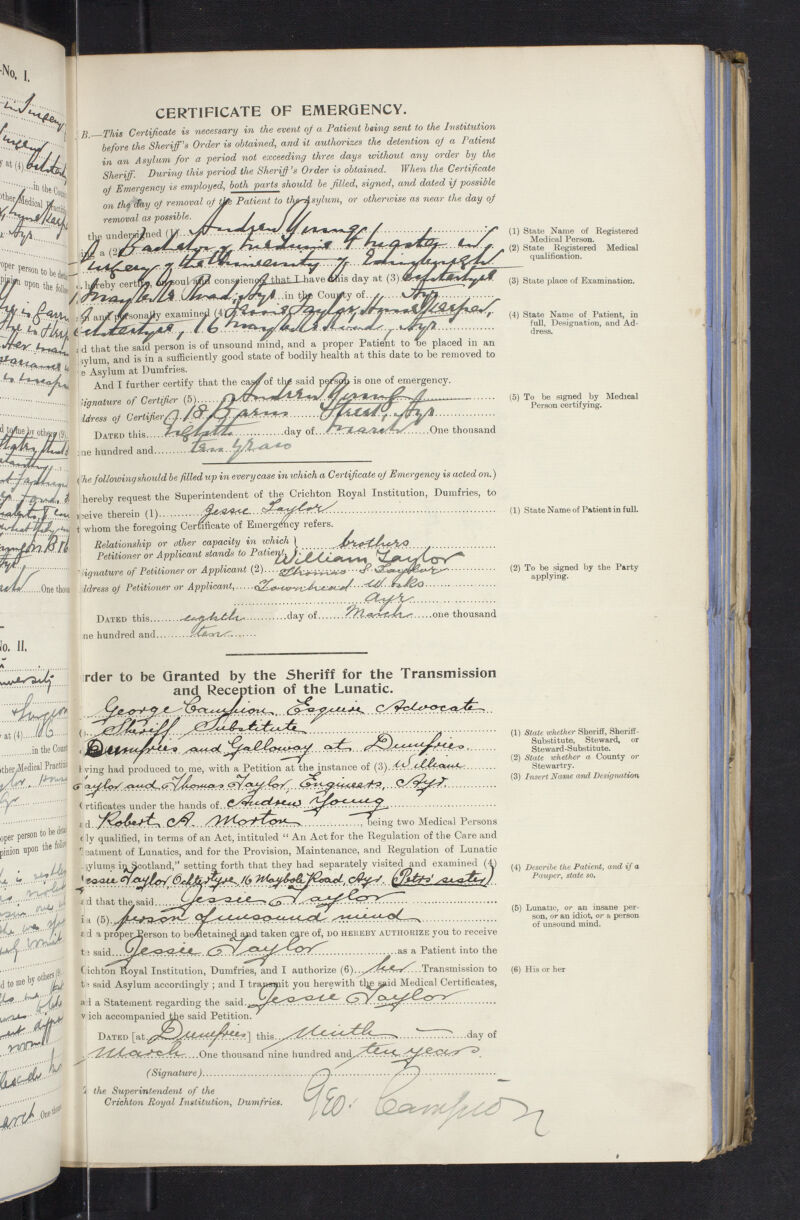 -No. I.
in the Coun
other Medical Practit
oper person to be detai
pinion upon the follow
d to me by others (9)
One thou
No. II.
at (4) 16
in the Count
other Medical Practit
oper person to be detai
pinion upon the follow
d to me by others (9)
One thou
CERTIFICATE OF EMERGENCY.
B.—This Certificate is necessary in the event of a Patient being sent to the Institution
before the Sheriff's Order is obtained, and it authorizes the detention of a Patient
in an Asylum for a period not exceeding three days without any order by the
Sheriff. During this period the Sheriff's Order is obtained. When the Certificate
of Emergency is employed, both parts should be filled, signed, and dated if possible
on the day of removal of the Patient to the Asylum, or otherwise as near the day of
removal as possible.
the undersigned (1) Andrew Young
a (2) Bachelor of Medicine & Master in
Surgery of the University of Edinburgh
hereby certify on soul and conscience, that I have this day at (3) Ochtertype
16 Maybole Road, Ayr in the County of Ayr
and personally examined (4) Jessie Taylor, Housekeeper,
Ochtertype, 16 Maybole Road, Ayr
d that the said person is of unsound mind, and a proper Patient to be placed in an
sylum, and is in a sufficiently good state of bodily health at this date to be removed to
e Asylum at Dumfries.
And I further certify that the case of the said person is one of emergency.
Signature of Certifier (5) Andrew Young
ddress of Certifier 18 Barns Street, Ayr
DATED this eighth day of March One thousand
ne hundred and ten years
(The following should be filled up in every case in which a Certificate of Emergency is acted on.)
hereby request the Superintendent of the Crichton Royal Institution, Dumfries, to
eceive therein (1) Jessie Taylor
whom the foregoing Certificate of Emergency refers.
Relationship or other capacity in which
Petitioner or Applicant stands to Patient } brothers
William Taylor
Signature of Petitioner or Applicant (2) Thomas S. Taylor
ddress of Petitioner or Applicant, Townhead Works
Ayr
DATED this eighth day of March one thousand
ne hundred and ten
rder to be Granted by the Sheriff for the Transmission
and Reception of the Lunatic.
George Campion Esquire Advocate
Sheriff Substitute
Dumfries and Galloway at Dumfries
ving had produced to me, with a Petition at the instance of (3) William
Taylor and Thomas Taylor, Engineers, Ayr
rtificates under the hands of Andrew Young
d Robert A. Morton, being two Medical Persons
ly qualified, in terms of an Act, intituled "An Act for the Regulation of the Care and
eatment of Lunatics, and for the Provision, Maintenance, and Regulation of Lunatic
sylums in Scotland," setting forth that they had separately visited and examined (4)
Jessie Taylor, Ochtertype, 16 Maybole Road, Ayr. (Petrs' sister)
d that the said Jessie Taylor
is a (5) person of unsound mind
d a proper Person to be detained and taken care of, DO HEREBY AUTHORIZE you to receive
te said Jessie Taylor as a Patient into the
Crichton Royal Institution, Dumfries, and I authorize (6) her Transmission to
te said Asylum accordingly; and I transmit you herewith the said Medical Certificates,
ad a Statement regarding the said Jessie Taylor
which accompanied the said Petition.
DATED [at Dumfries] this Ninth day of
March One thousand nine hundred and ten years.
(Signature)
Geo: Campion
the Superintendent of the
Crichton Royal Institution, Dumfries.
(1) State Name of Registered
Medical Person.
(2) State Registered Medical
qualification.
(3) State place of Examination.
(4) State Name of Patient, in
full, Designation, and Ad-
dress.
(5) To be signed by Medical
Person certifying.
(1) State Name of Patient in full.
(2) To be signed by the Party
applying.
(1) State whether Sheriff, Sheriff-
Substitute, Steward, or
Steward-Substitute.
(2) State whether a County or
Stewartry.
(3) Insert Name and Designation
(4) Describe the Patient, and if a
Pauper, state so.
(5) Lunatic, or an insane per-
son, or an idiot, or a person
of unsound mind.
(6) His or her